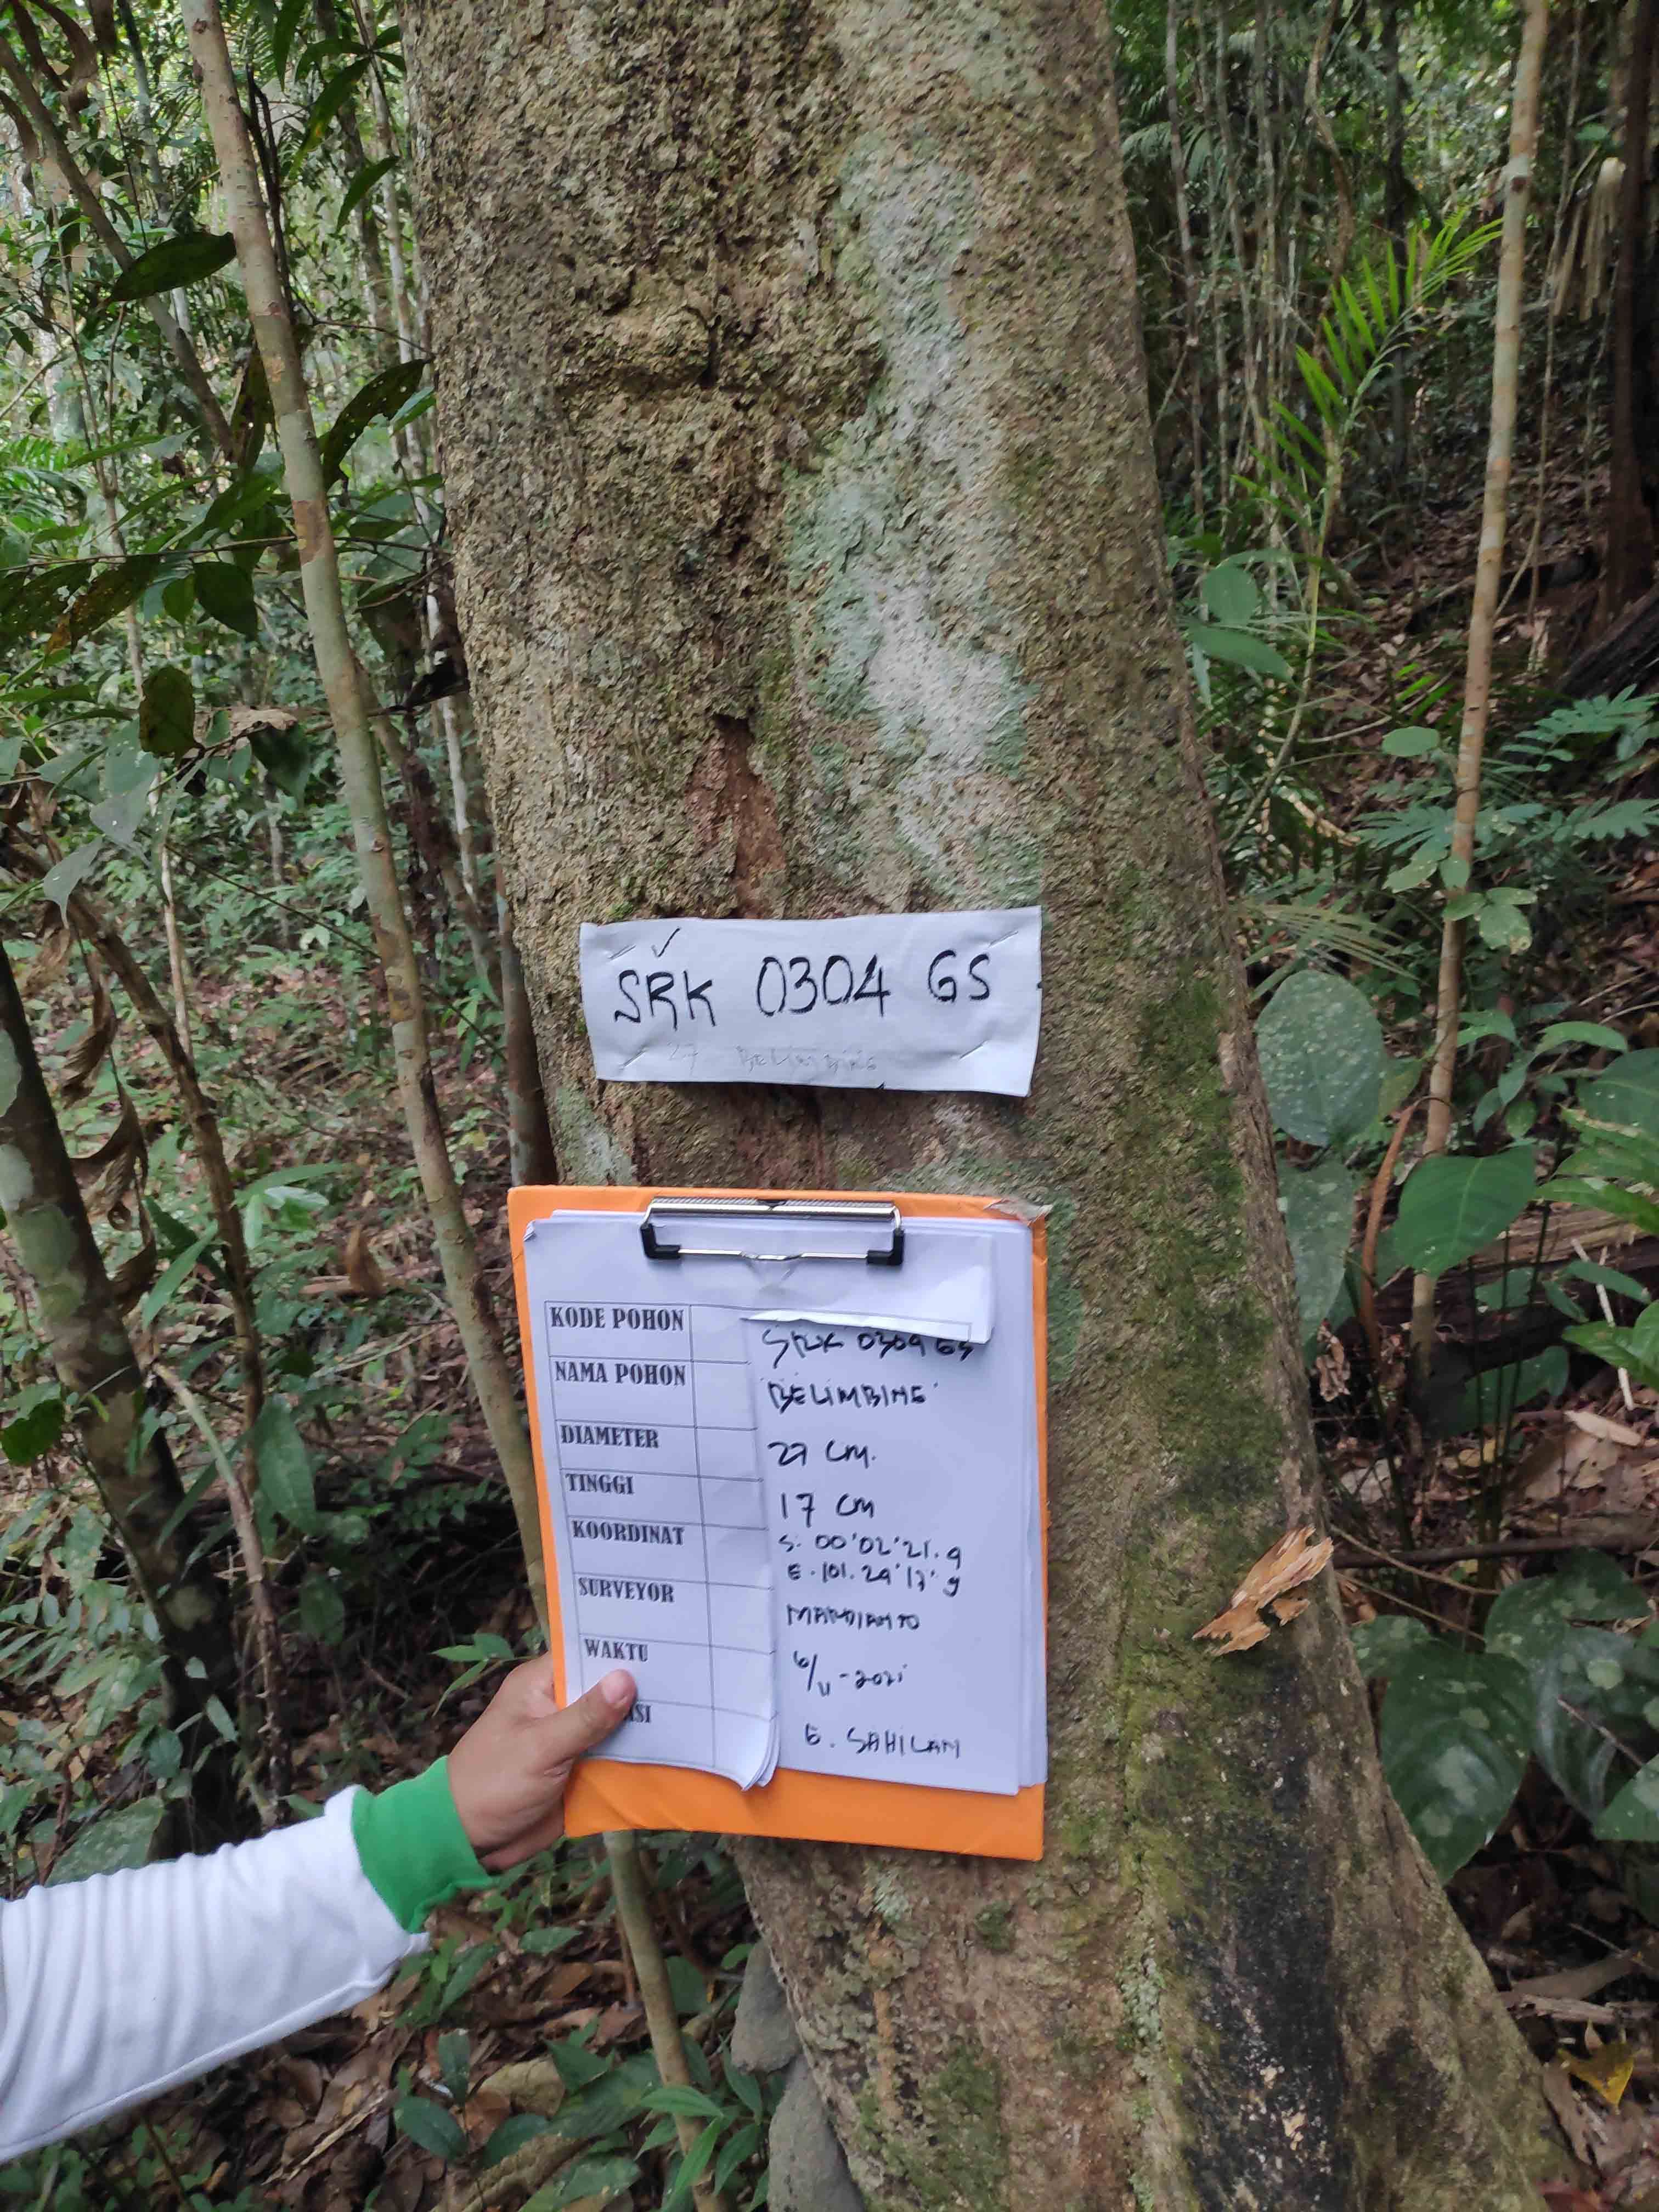 SRK 0304 GS
27 BELIMBING
KODE POHON SRK 0304 GS
NAMA POHON BELIMBING
DIAMETER 27 CM.
TINGGI 17 CM
KOORDINAT S. 00°02'21.9
E. 101.29'17.9
SURVEYOR MARDIANTO
WAKTU 6/11-2021
G. SAHILAN